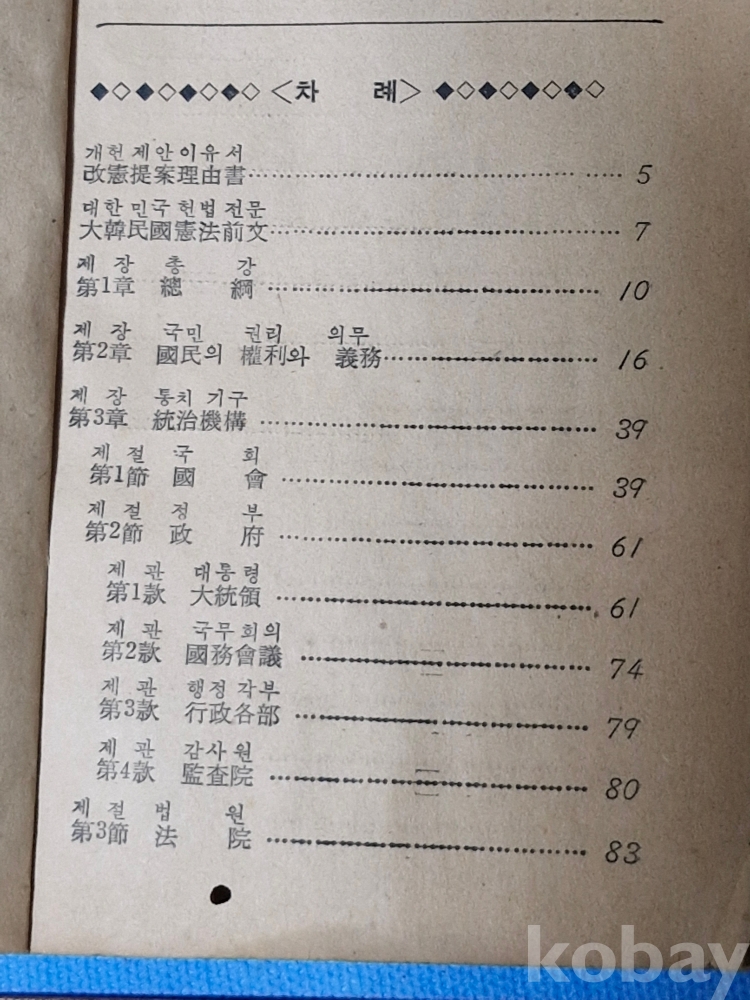 ◆◇◆◇◆◇◆◇ <차 례> ◆◇◆◇◆◇◆◇
개헌제안이유서
改憲提案理由書 5
대한민국헌법전문
大韓民國憲法前文 7
제 장 총 강
第1章 總 綱 10
제 장 국민 권리 의무
第2章 國民의 權利와 義務 16
제 장 통치 기구
第3章 統治機構 39
제 절 국 회
第1節 國 會 39
제 절 정 부
第2節 政 府 61
제 관 대통령
第1款 大統領 61
제 관 국무회의
第2款 國務會議 74
제 관 행정각부
第3款 行政各部 79
제 관 감사원
第4款 監査院 80
제 절 법 원
第3節 法 院 83
kobay